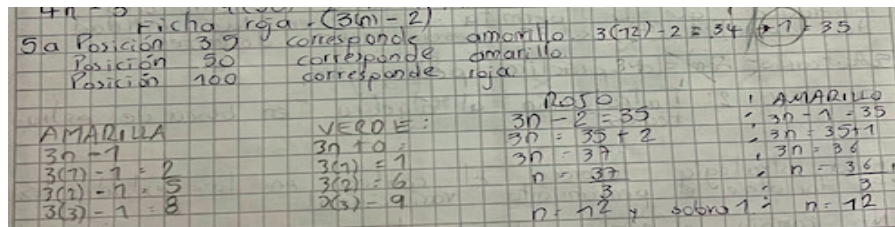 4n - 5
Ficha roja. (3(n) - 2)
5a Posición 35 corresponde amarillo 3(12) - 2 = 34 + 1 = 35
Posición 50 corresponde amarillo
Posición 100 corresponde roja
AMARILLA
3n - 1
3(1) - 1 = 2
3(2) - 1 = 5
3(3) - 1 = 8
VERDE:
3n + 0 =
3(1) = 1
3(2) = 6
3(3) - 9
ROJO
3n - 2 = 35
3n = 35 + 2
3n = 37
n = 37
3
n = 12 y sobra 1
AMARILLO
3n - 1 = 35
3n = 35 + 1
3n = 36
n = 36
3
n = 12